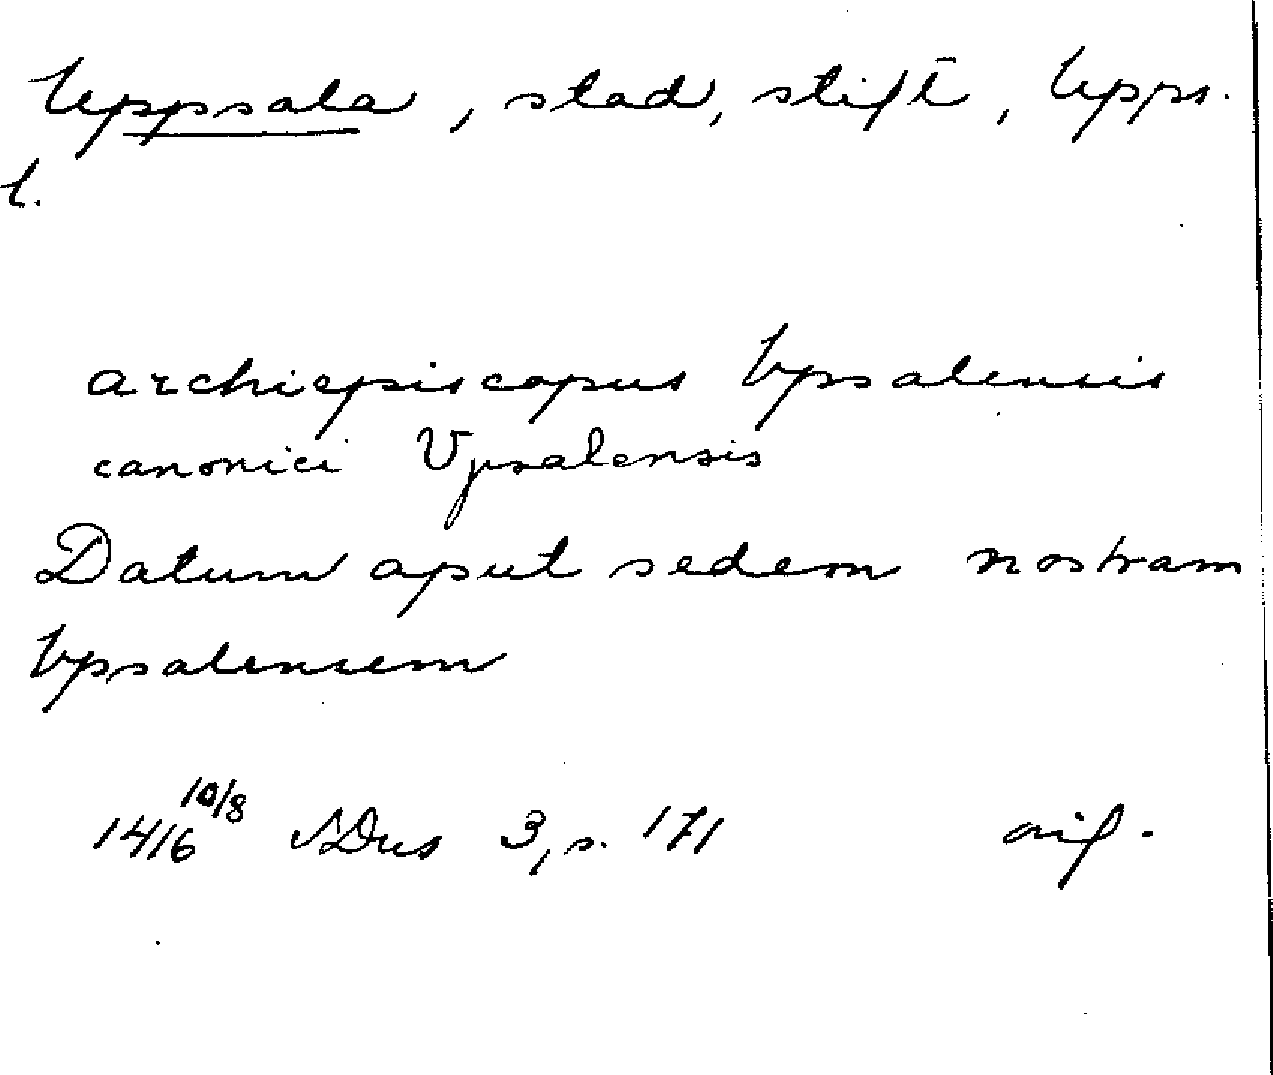 Uppsala, stad, stift, Upps.
l.
archiepiscopus Vpsalensis
canonici Vpsalensis
Datum aput sedem nostram
Vpsalensem
1416 10/8 SDns 3, s. 171 avf.